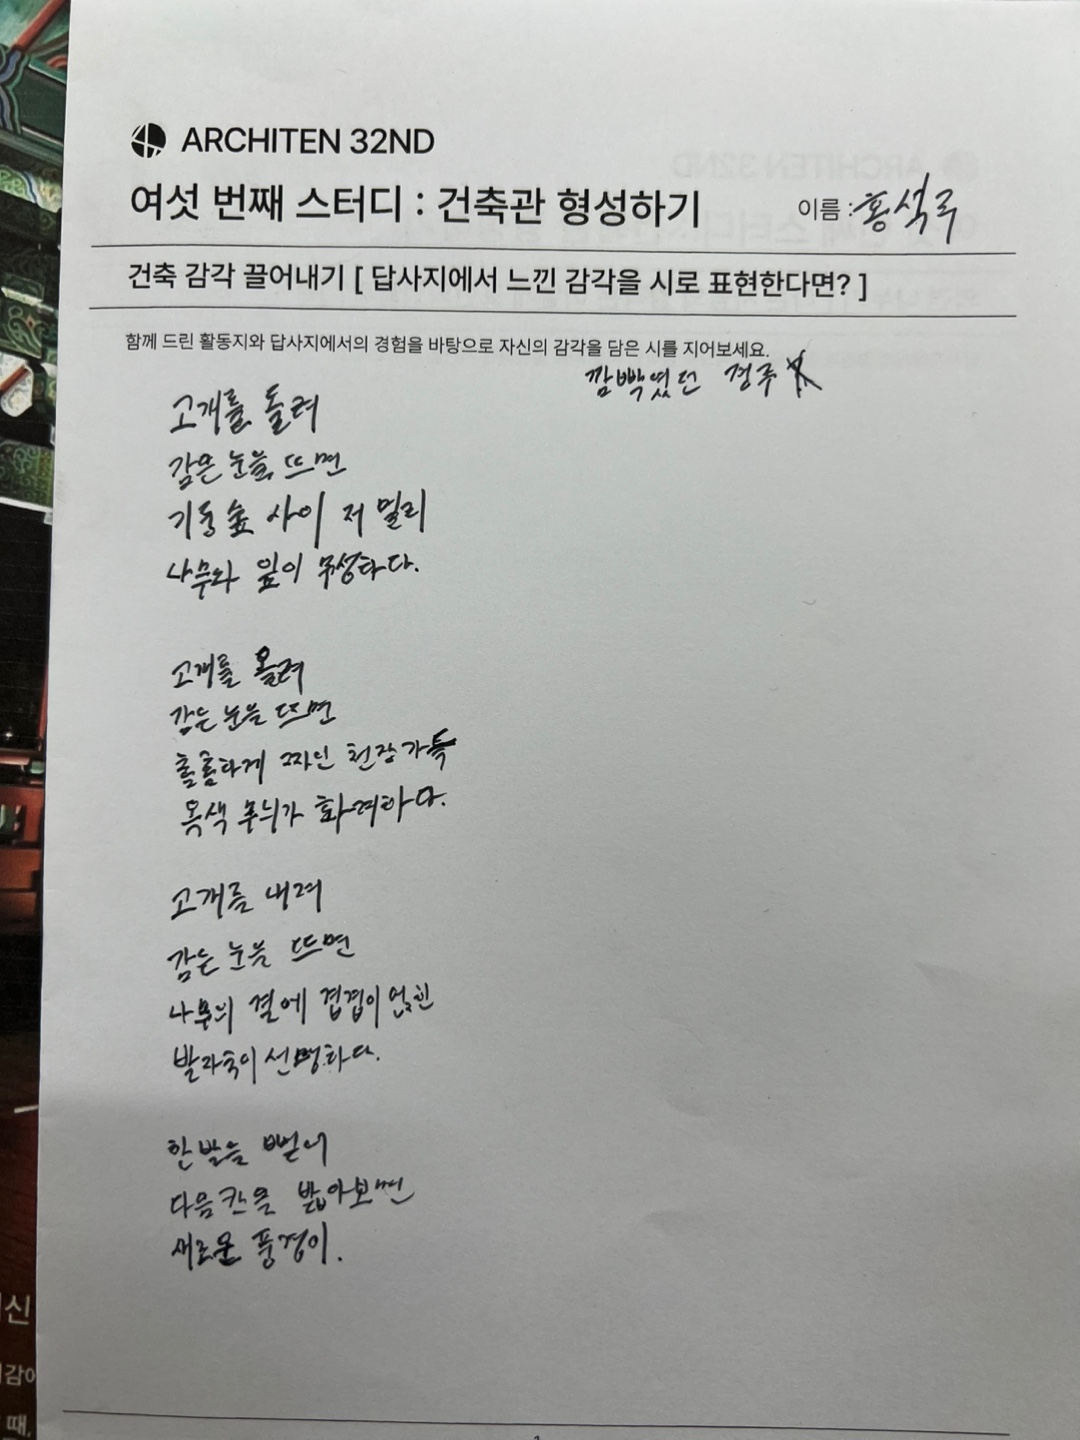 ARCHITEN 32ND
여섯 번째 스터디 : 건축관 형성하기
이름 : 홍석주
건축 감각 끌어내기 [ 답사지에서 느낀 감각을 시로 표현한다면? ]
함께 드린 활동지와 답사지에서의 경험을 바탕으로 자신의 감각을 담은 시를 지어보세요.
깜빡였던 경루
고개를 돌려
감은 눈을 뜨면
기둥숲 사이 저 멀리
나무와 잎이 무성하다.
고개를 올려
감은 눈을 뜨면
촘촘하게 짜인 천장 가득
옥색 무늬가 화려하다.
고개를 내려
감은 눈을 뜨면
나무의 결에 겹겹이 얹힌
발자국이 선명하다.
한 발을 뻗어
다음 칸을 밟아보면
새로운 풍경이.
신
감이
때,